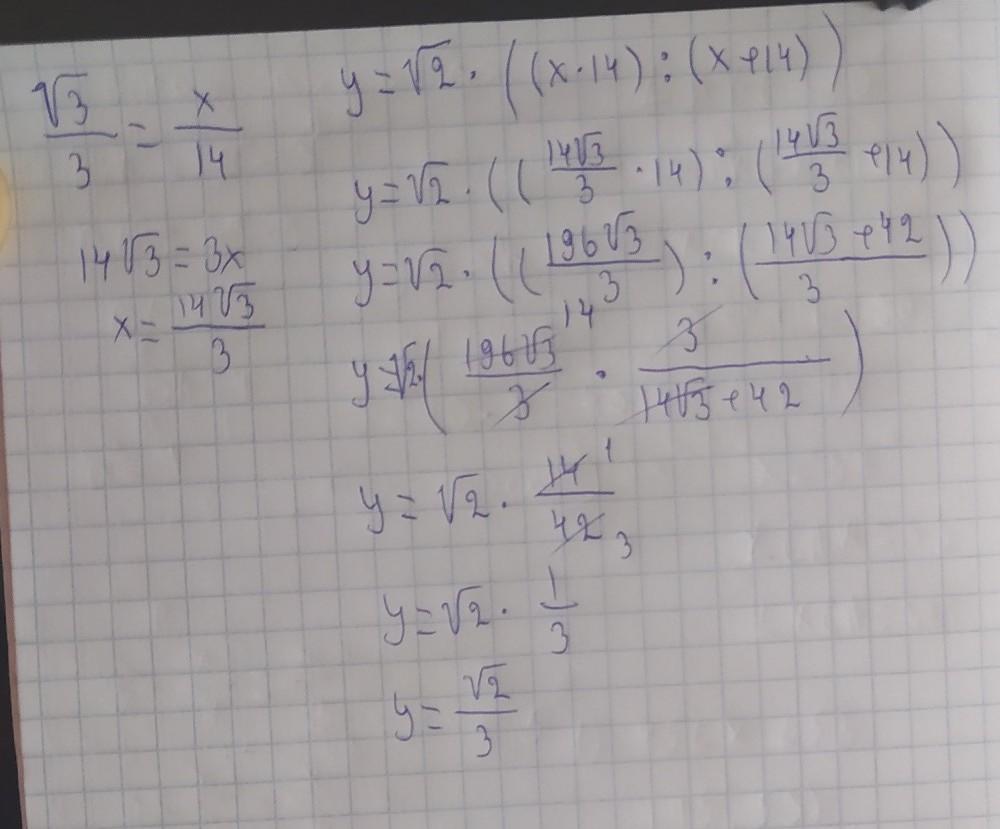 √3/3 = x/14
14√3 = 3x
x = 14√3/3
y = √2 · ((x·14) : (x+14))
y = √2 · ((14√3/3 · 14) : (14√3/3 + 14))
y = √2 · ((196√3/3) : (14√3+42/3))
14
y = √2·(196√3/3 · 3/14√3+42)
y = √2 · 14/42 1 3
y = √2 · 1/3
y = √2/3